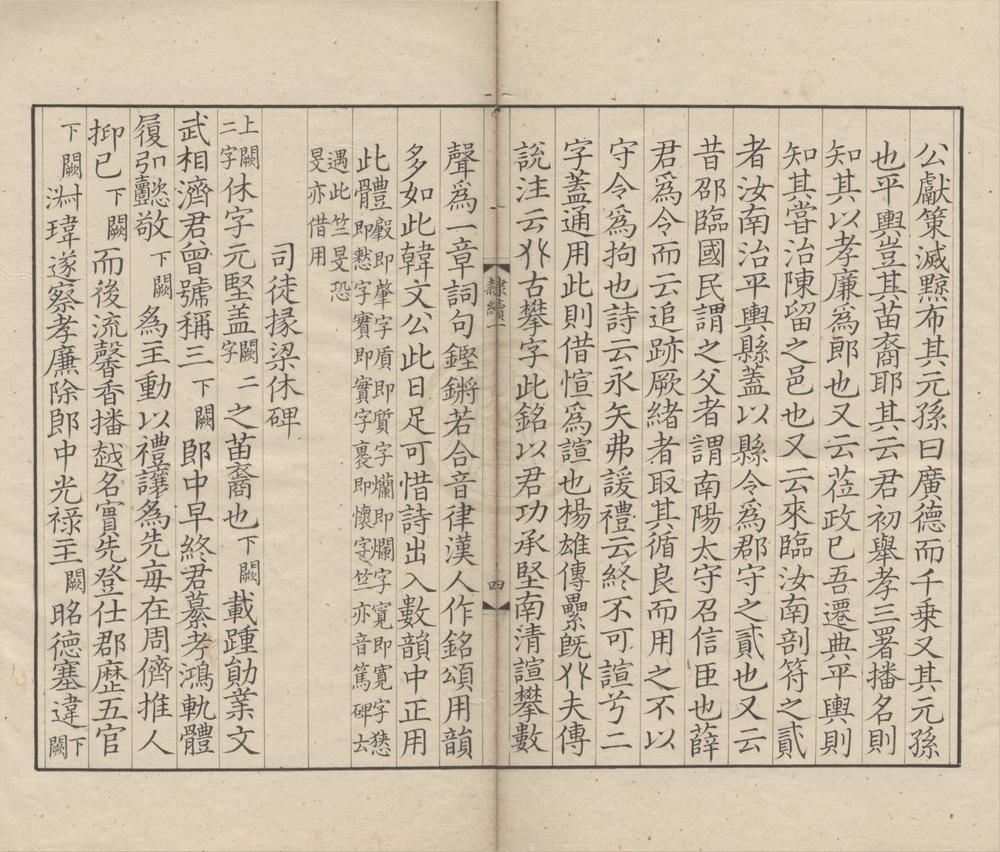 公獻策滅黥布其元孫曰廣德而千乗又其元孫
也平輿豈其苗裔耶其云君初舉孝三署播名則
知其以孝廉為郎也又云莅政巳吾遷典平輿則
知其嘗治陳留之邑也又云來臨汝南剖符之貳
者汝南治平輿縣蓋以縣令為郡守之貳也又云
昔邵臨國民謂之父者謂南陽太守召信臣也薛
君為令而云追跡厥緒者取其循良而用之不以
守令為拘也詩云永矢弗諼禮云終不可諠兮二
字蓋通用此則借愃為諠也楊雄傳纍旣𠬜夫傳
說注云𠬜古攀字此銘以君功承堅南清諠攀數
隸續一
四
聲為一章詞句鏗鏘若合音律漢人作銘頌用韻
多如此韓文公此日足可惜詩出入數韻中正用
此體㲉即肇字貭即質字爛即爛字寬即寬字㥽
即愁字實即實字褱即懷字竺亦音篤碑云
遇此竺旻恐
旻亦借用
司徒掾梁休碑
上闕二字休字元堅蓋闕二字之苗裔也下闕載踵勛業文
武相濟君曾號稱三下闕郎中早終君纂孝鴻軌體
履弘懿敬下闕為主動以禮讓為先每在周儕推人
抑已下闕而後流馨香播越名實先登仕郡歴五官
下闕瑋遂察孝廉除郎中光祿主闕昭德塞違下闕